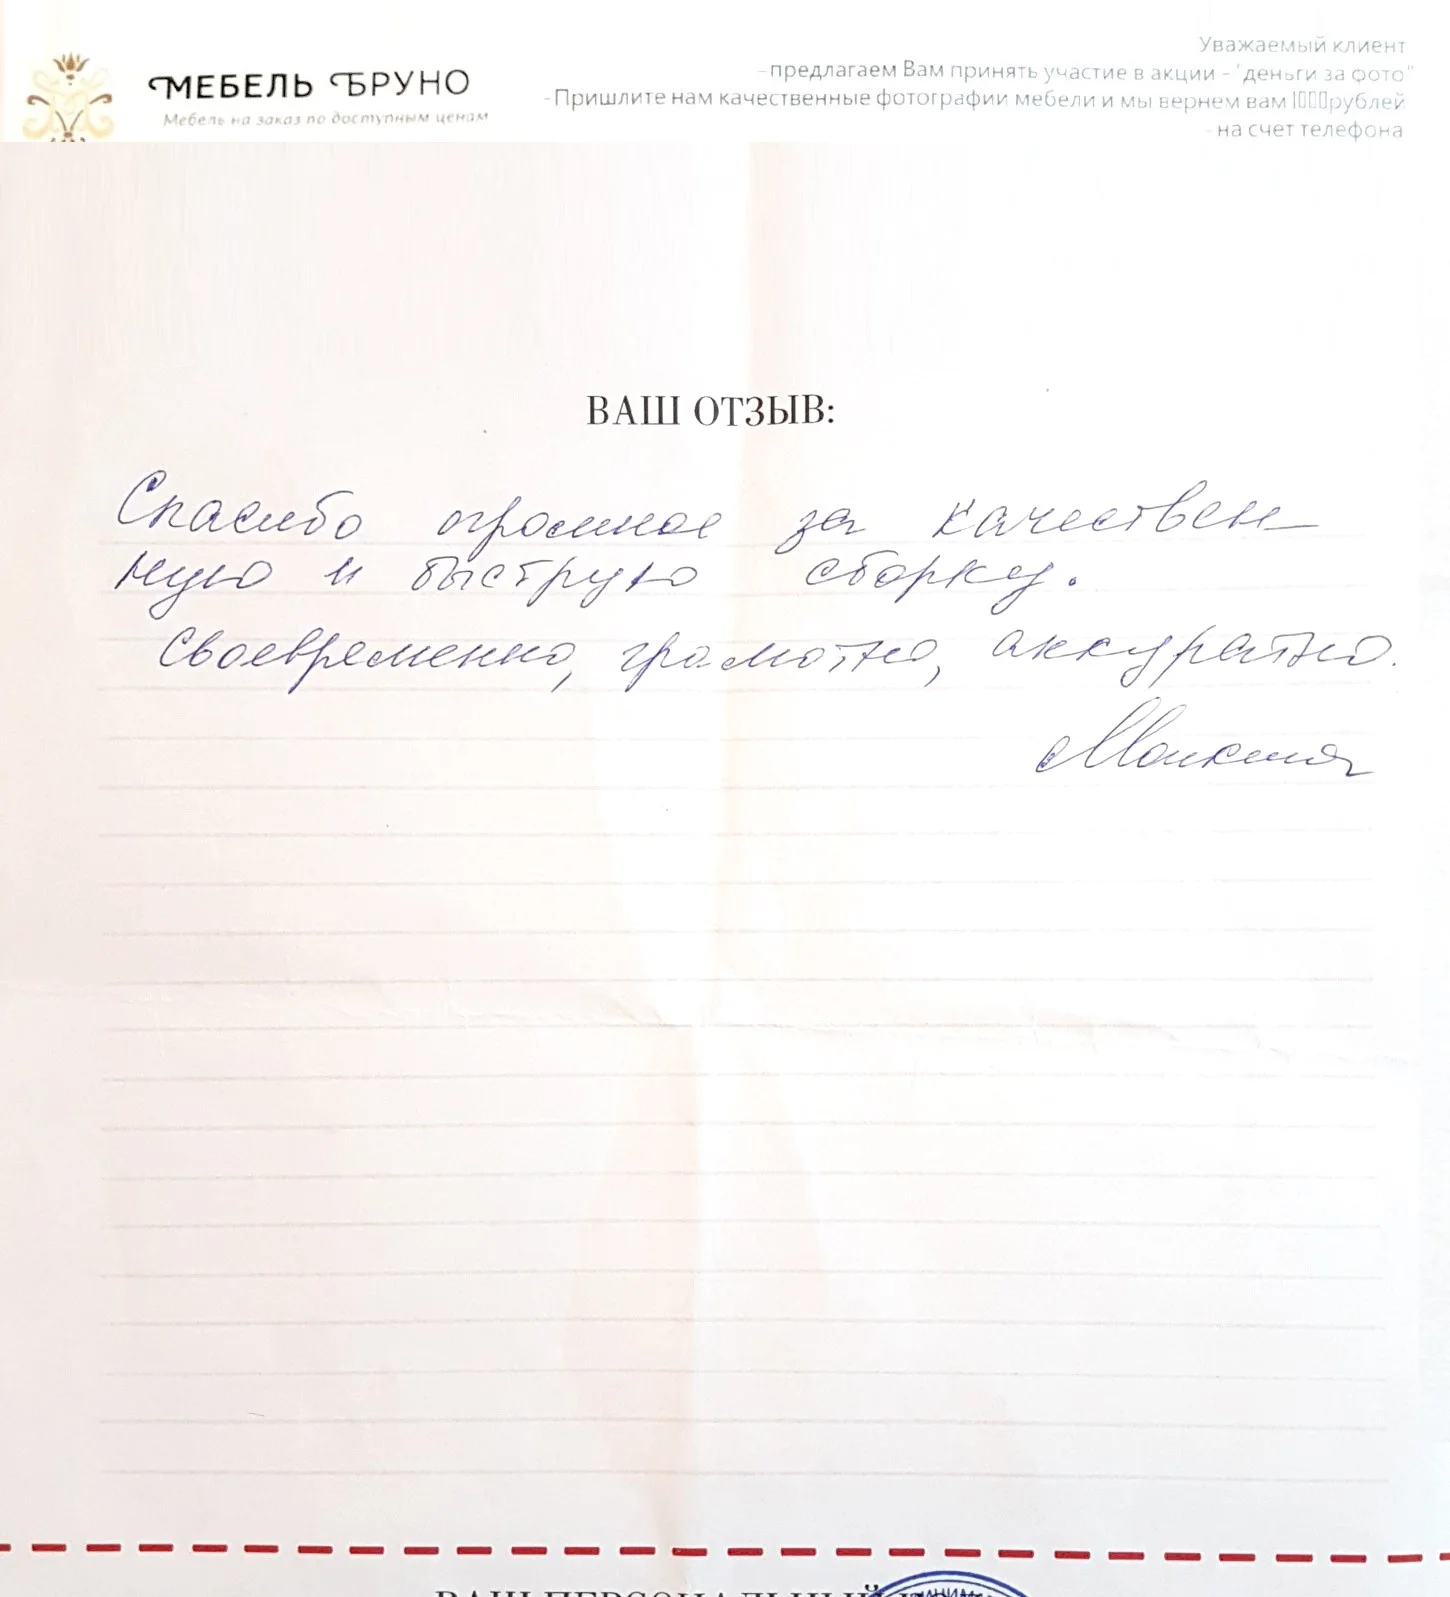 МЕБЕЛЬ БРУНО
Мебель на заказ по доступным ценам
Уважаемый клиент
- предлагаем Вам принять участие в акции - "деньги за фото"
- Пришлите нам качественные фотографии мебели и мы вернем вам 1000рублей
- на счет телефона
ВАШ ОТЗЫВ:
Спасибо огромное за качествен
ную и быструю сборку.
Своевременно, грамотно, аккуратно.
ВАШ ПЕРСОНАЛЬНЫЙ